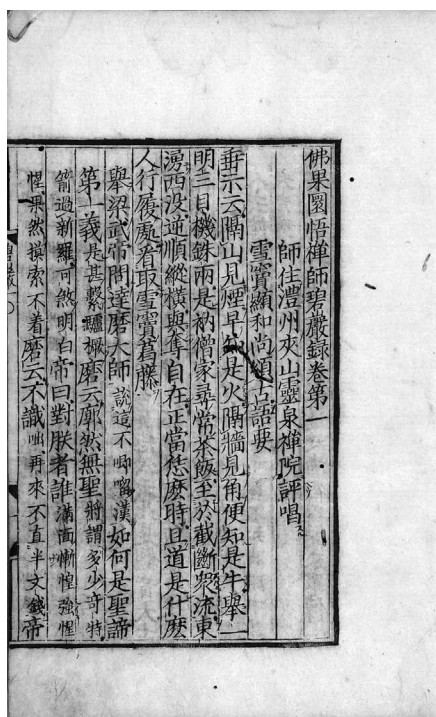 佛果圜悟禪師碧巖錄卷第一
師住澧州夾山靈泉禪院評唱
雪竇顯和尚頌古語要
垂示云隔山見煙早知是火隔牆見角便知是牛舉一
明三目機銖兩是衲僧家尋常茶飯至於截斷衆流東
湧西沒逆順縱橫與奪自在正當恁麽時且道是什麽
人行履處看取雪竇葛藤
舉梁武帝問達磨大師說這不唧㗛漢如何是聖諦
第一義是甚繫驢橛磨云廓然無聖將謂多少奇特
箭過新羅可煞明白帝曰對朕者誰滿面慚惶強惺
惺果然摸索不着磨云不識咄再來不直半文錢帝